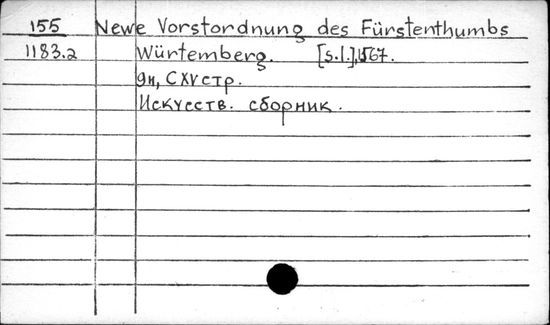 155 Newe Vorstordnung des Fürstenthumbs
1183.2 Würtemberg. [s.l.], 1567.
9н, CXV стр.
Искусств. сборник.